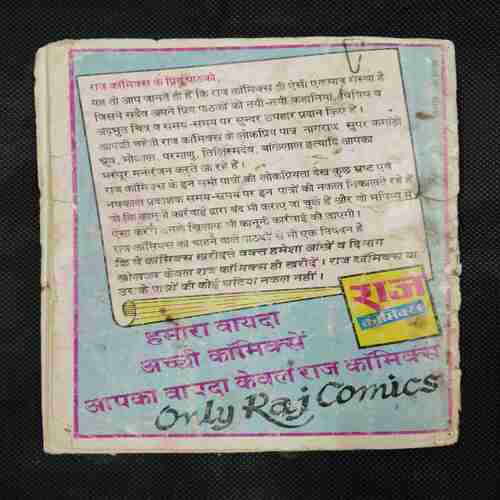 राज कॉमिक्स के प्रिय पाठको,
यह तो आप जानते ही हैं कि राज कॉमिक्स ही ऐसी एकमात्र संस्था है
जिसने सदैव अपने प्रिय पाठकों को नयी-नयी कहानियां, विचित्र व
अद्भुत चित्र व समय-समय पर सुन्दर उपहार प्रदान किए हैं।
आपकी चहेती राज कॉमिक्स के लोकप्रिय पात्र नागराज, सुपर कमाण्डो
ध्रुव, भोकाल, परमाणु, तिलिस्मदेव, बांकेलाल इत्यादि आपका
भरपूर मनोरंजन करते आ रहे हैं।
राज कॉमिक्स के इन सभी पात्रों की लोकप्रियता देख कुछ भ्रष्ट एवं
प्रकाशक समय-समय पर इन पात्रों की नकल निकालते रहे हैं
जो कि कानूनी कार्रवाई द्वारा बंद भी कराए जा चुके हैं और जो भविष्य में
ऐसा करेंगे उनके खिलाफ भी कानूनी कार्रवाई की जाएगी।
राज कॉमिक्स को चाहने वाले पाठकों से भी एक निवेदन है
कि वे कॉमिक्स खरीदते वक्त हमेशा आंखें व दिमाग
खोलकर केवल राज कॉमिक्स ही खरीदें। राज कॉमिक्स या
उसके पात्रों की कोई घटिया नकल नहीं।
राज
कॉमिक्स
हमारा वायदा
अच्छी कॉमिक्सें
आपका वायदा केवल राज कॉमिक्स
Only Raj Comics